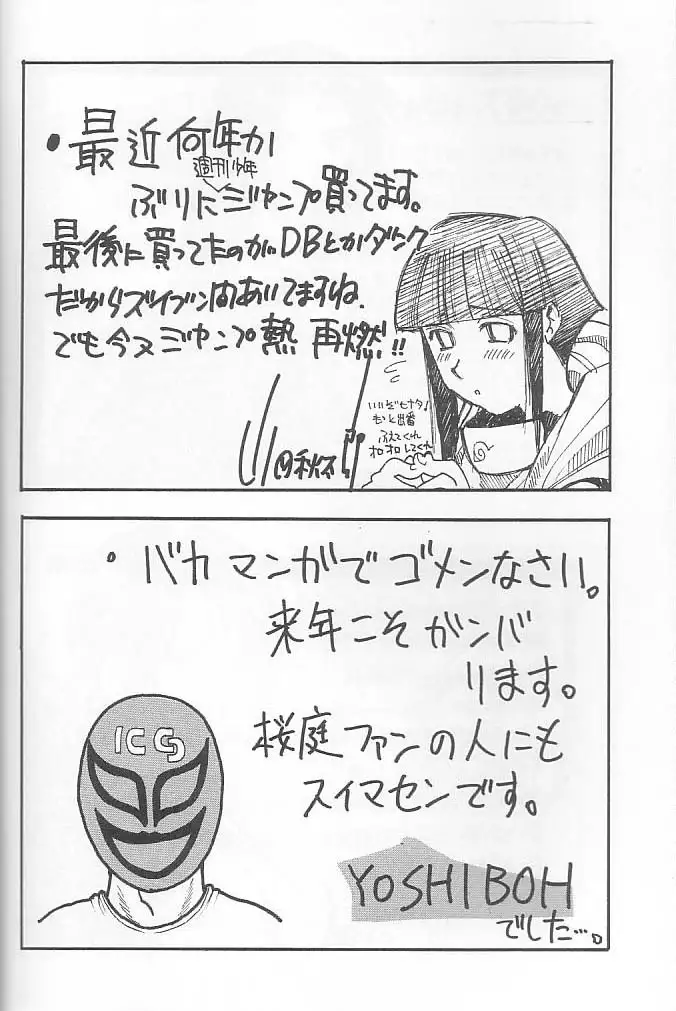 ・最近何年か
週刊少年
ぶりにジャンプ買ってます。
最後に買ってたのがDBとかダンク
だからズイブン間あいてますね.
でも今又ジャンプ熱 再燃!!
いいぞヒナタ♪
もっと出番
ふえてくれ
オロオロしてくれ
・バカマンガでゴメンなさい。
来年こそガンバ
ります。
桜庭ファンの人にも
スイマセンです。
YOSHIBOH
でした…。